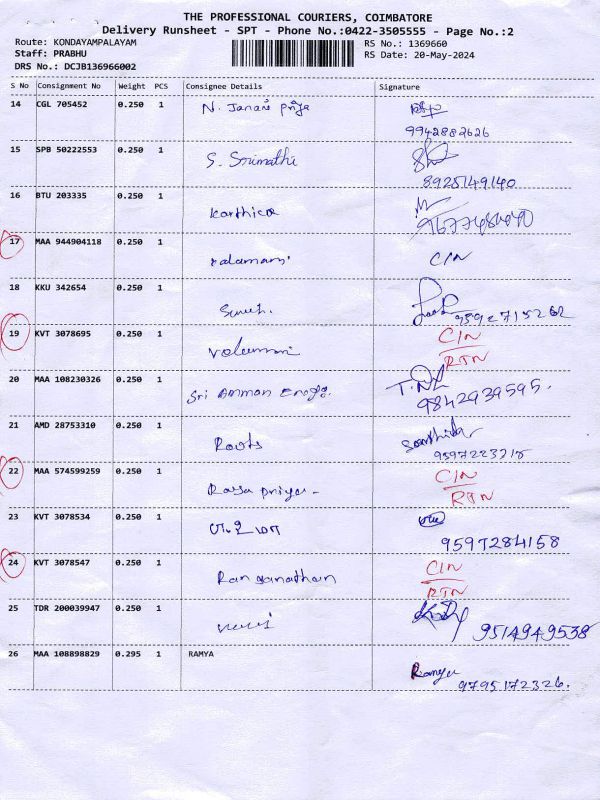 THE PROFESSIONAL COURIERS, COIMBATORE
Delivery Runsheet - SPT - Phone No.:0422-3505555 - Page No.:2
Route: KONDAYAMPALAYAM RS No.: 1369660
Staff: PRABHU RS Date: 20-May-2024
DRS No.: DCJB136966002
S No Consignment No Weight PCS Consignee Details Signature
14 CGL 705452 0.250 1 N. Janani Priya
9942882626
15 SPB 50222553 0.250 1 S. Srimathi
8925149140
16 BTU 203335 0.250 1 Karthica
17 MAA 944904118 0.250 1 CIN
18 KKU 342654 0.250 1
19 KVT 3078695 0.250 1 CIN
RTN
20 MAA 108230326 0.250 1 Sri Amman
9842939595.
21 AMD 28753310 0.250 1 Roots
9597223718
22 MAA 574599259 0.250 1 CIN
RTN
23 KVT 3078534 0.250 1
9597284158
24 KVT 3078547 0.250 1 Ranganathan CIN
RTN
25 TDR 200039947 0.250 1
9514949538
26 MAA 108898829 0.295 1 RAMYA Ramya
9795172326.